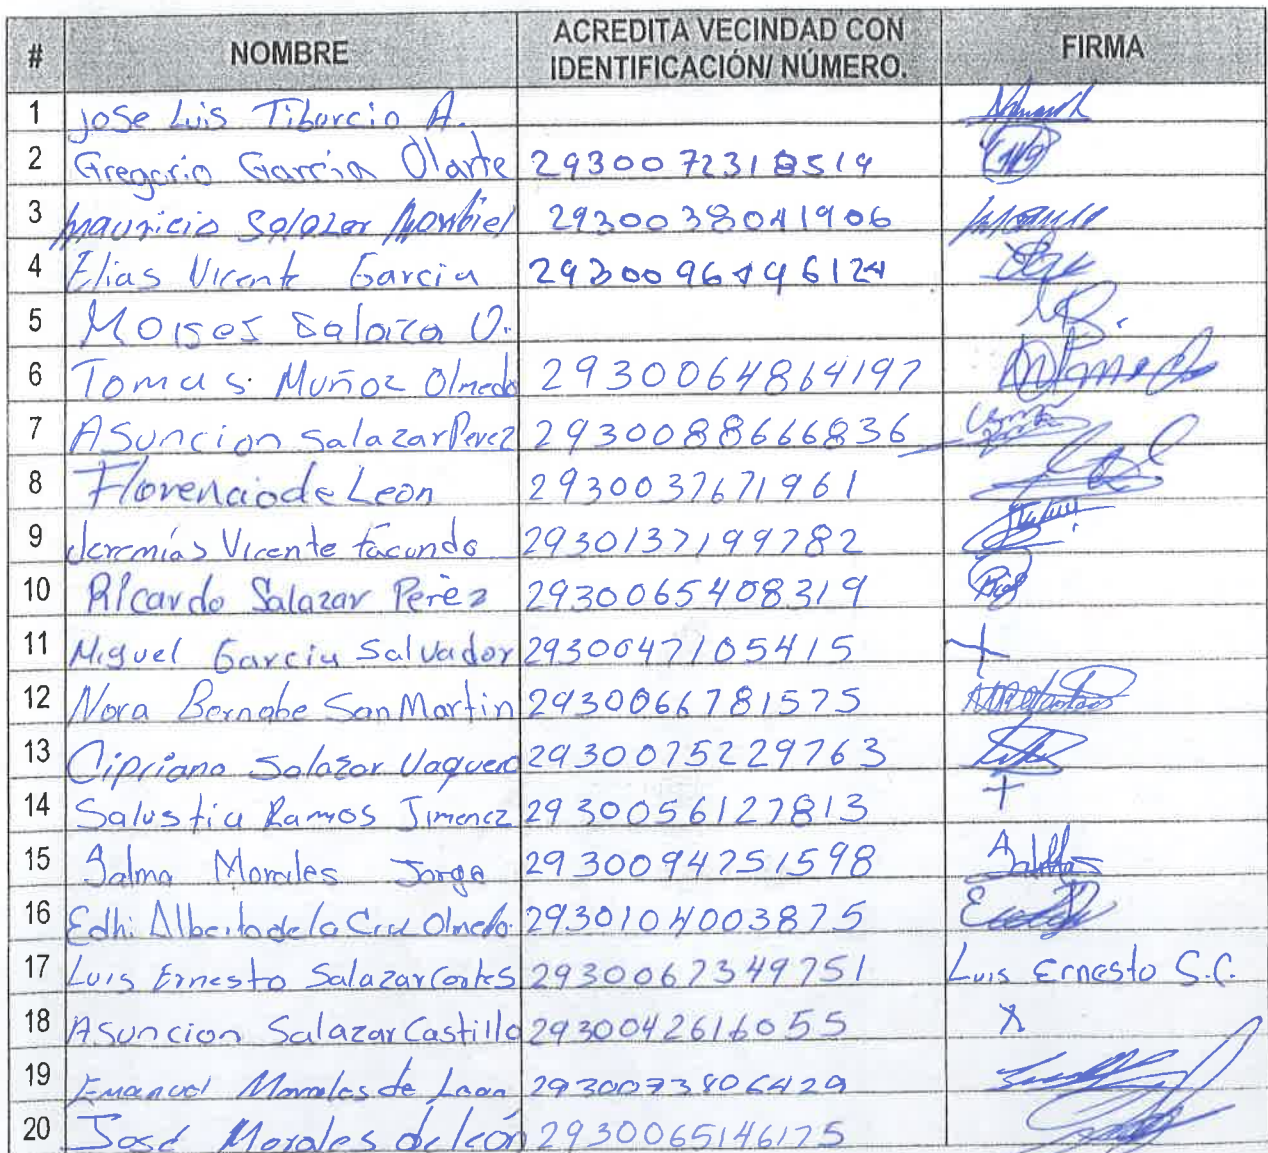 # NOMBRE ACREDITA VECINDAD CON IDENTIFICACIÓN/ NÚMERO. FIRMA
1 jose Luis Tiburcio A.
2 Gregorio Garcia Olarte 2930072318519
3 Mauricio Salazar Montiel 2930038041906
4 Elias Vicente Garcia 2930096496124
5 Moises Salaiza O.
6 Tomas Muñoz Olmedo 2930064864197
7 ASuncion Salazar Perez 2930088666836
8 Florencio de Leon 2930037671961
9 Jeremías Vicente facundo 2930137199782
10 Ricardo Salazar Perèz 2930065408319
11 Miguel Garcia Salvador 2930047105415 +
12 Nora Bernabe San Martin 2930066781575
13 Cipriano Salazar Vaquero 2930075229763
14 Salustia Ramos Jimenez 2930056127813 +
15 Salma Morales Jorge 2930094751598
16 Edhi Alberto de la Cruz Olmedo. 2930104003875
17 Luis Ernesto Salazar Cortes 2930067349751 Luis Ernesto S.C.
18 ASuncion Salazar Castillo 2930042616055 X
19 Emanuel Morales de Leon 2930073806429
20 José Morales de león 2930065146175